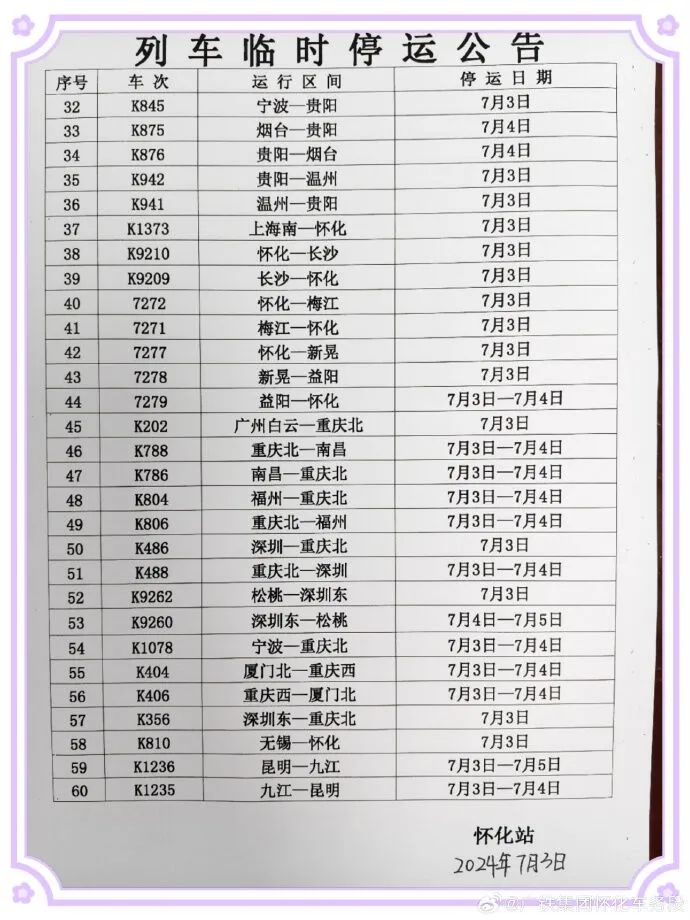 列车临时停运公告
序号 车次 运行区间 停运日期
32 K845 宁波—贵阳 7月3日
33 K875 烟台—贵阳 7月4日
34 K876 贵阳—烟台 7月4日
35 K942 贵阳—温州 7月3日
36 K941 温州—贵阳 7月3日
37 K1373 上海南—怀化 7月3日
38 K9210 怀化—长沙 7月3日
39 K9209 长沙—怀化 7月3日
40 7272 怀化—梅江 7月3日
41 7271 梅江—怀化 7月3日
42 7277 怀化—新晃 7月3日
43 7278 新晃—益阳 7月3日
44 7279 益阳—怀化 7月3日—7月4日
45 K202 广州白云—重庆北 7月3日
46 K788 重庆北—南昌 7月3日—7月4日
47 K786 南昌—重庆北 7月3日—7月4日
48 K804 福州—重庆北 7月3日—7月4日
49 K806 重庆北—福州 7月3日—7月4日
50 K486 深圳—重庆北 7月3日
51 K488 重庆北—深圳 7月3日—7月4日
52 K9262 松桃—深圳东 7月3日
53 K9260 深圳东—松桃 7月4日—7月5日
54 K1078 宁波—重庆北 7月3日—7月4日
55 K404 厦门北—重庆西 7月3日—7月4日
56 K406 重庆西—厦门北 7月3日—7月4日
57 K356 深圳东—重庆北 7月3日
58 K810 无锡—怀化 7月3日
59 K1236 昆明—九江 7月3日—7月5日
60 K1235 九江—昆明 7月3日—7月4日
怀化站
2024年7月3日
@广铁集团怀化车务段